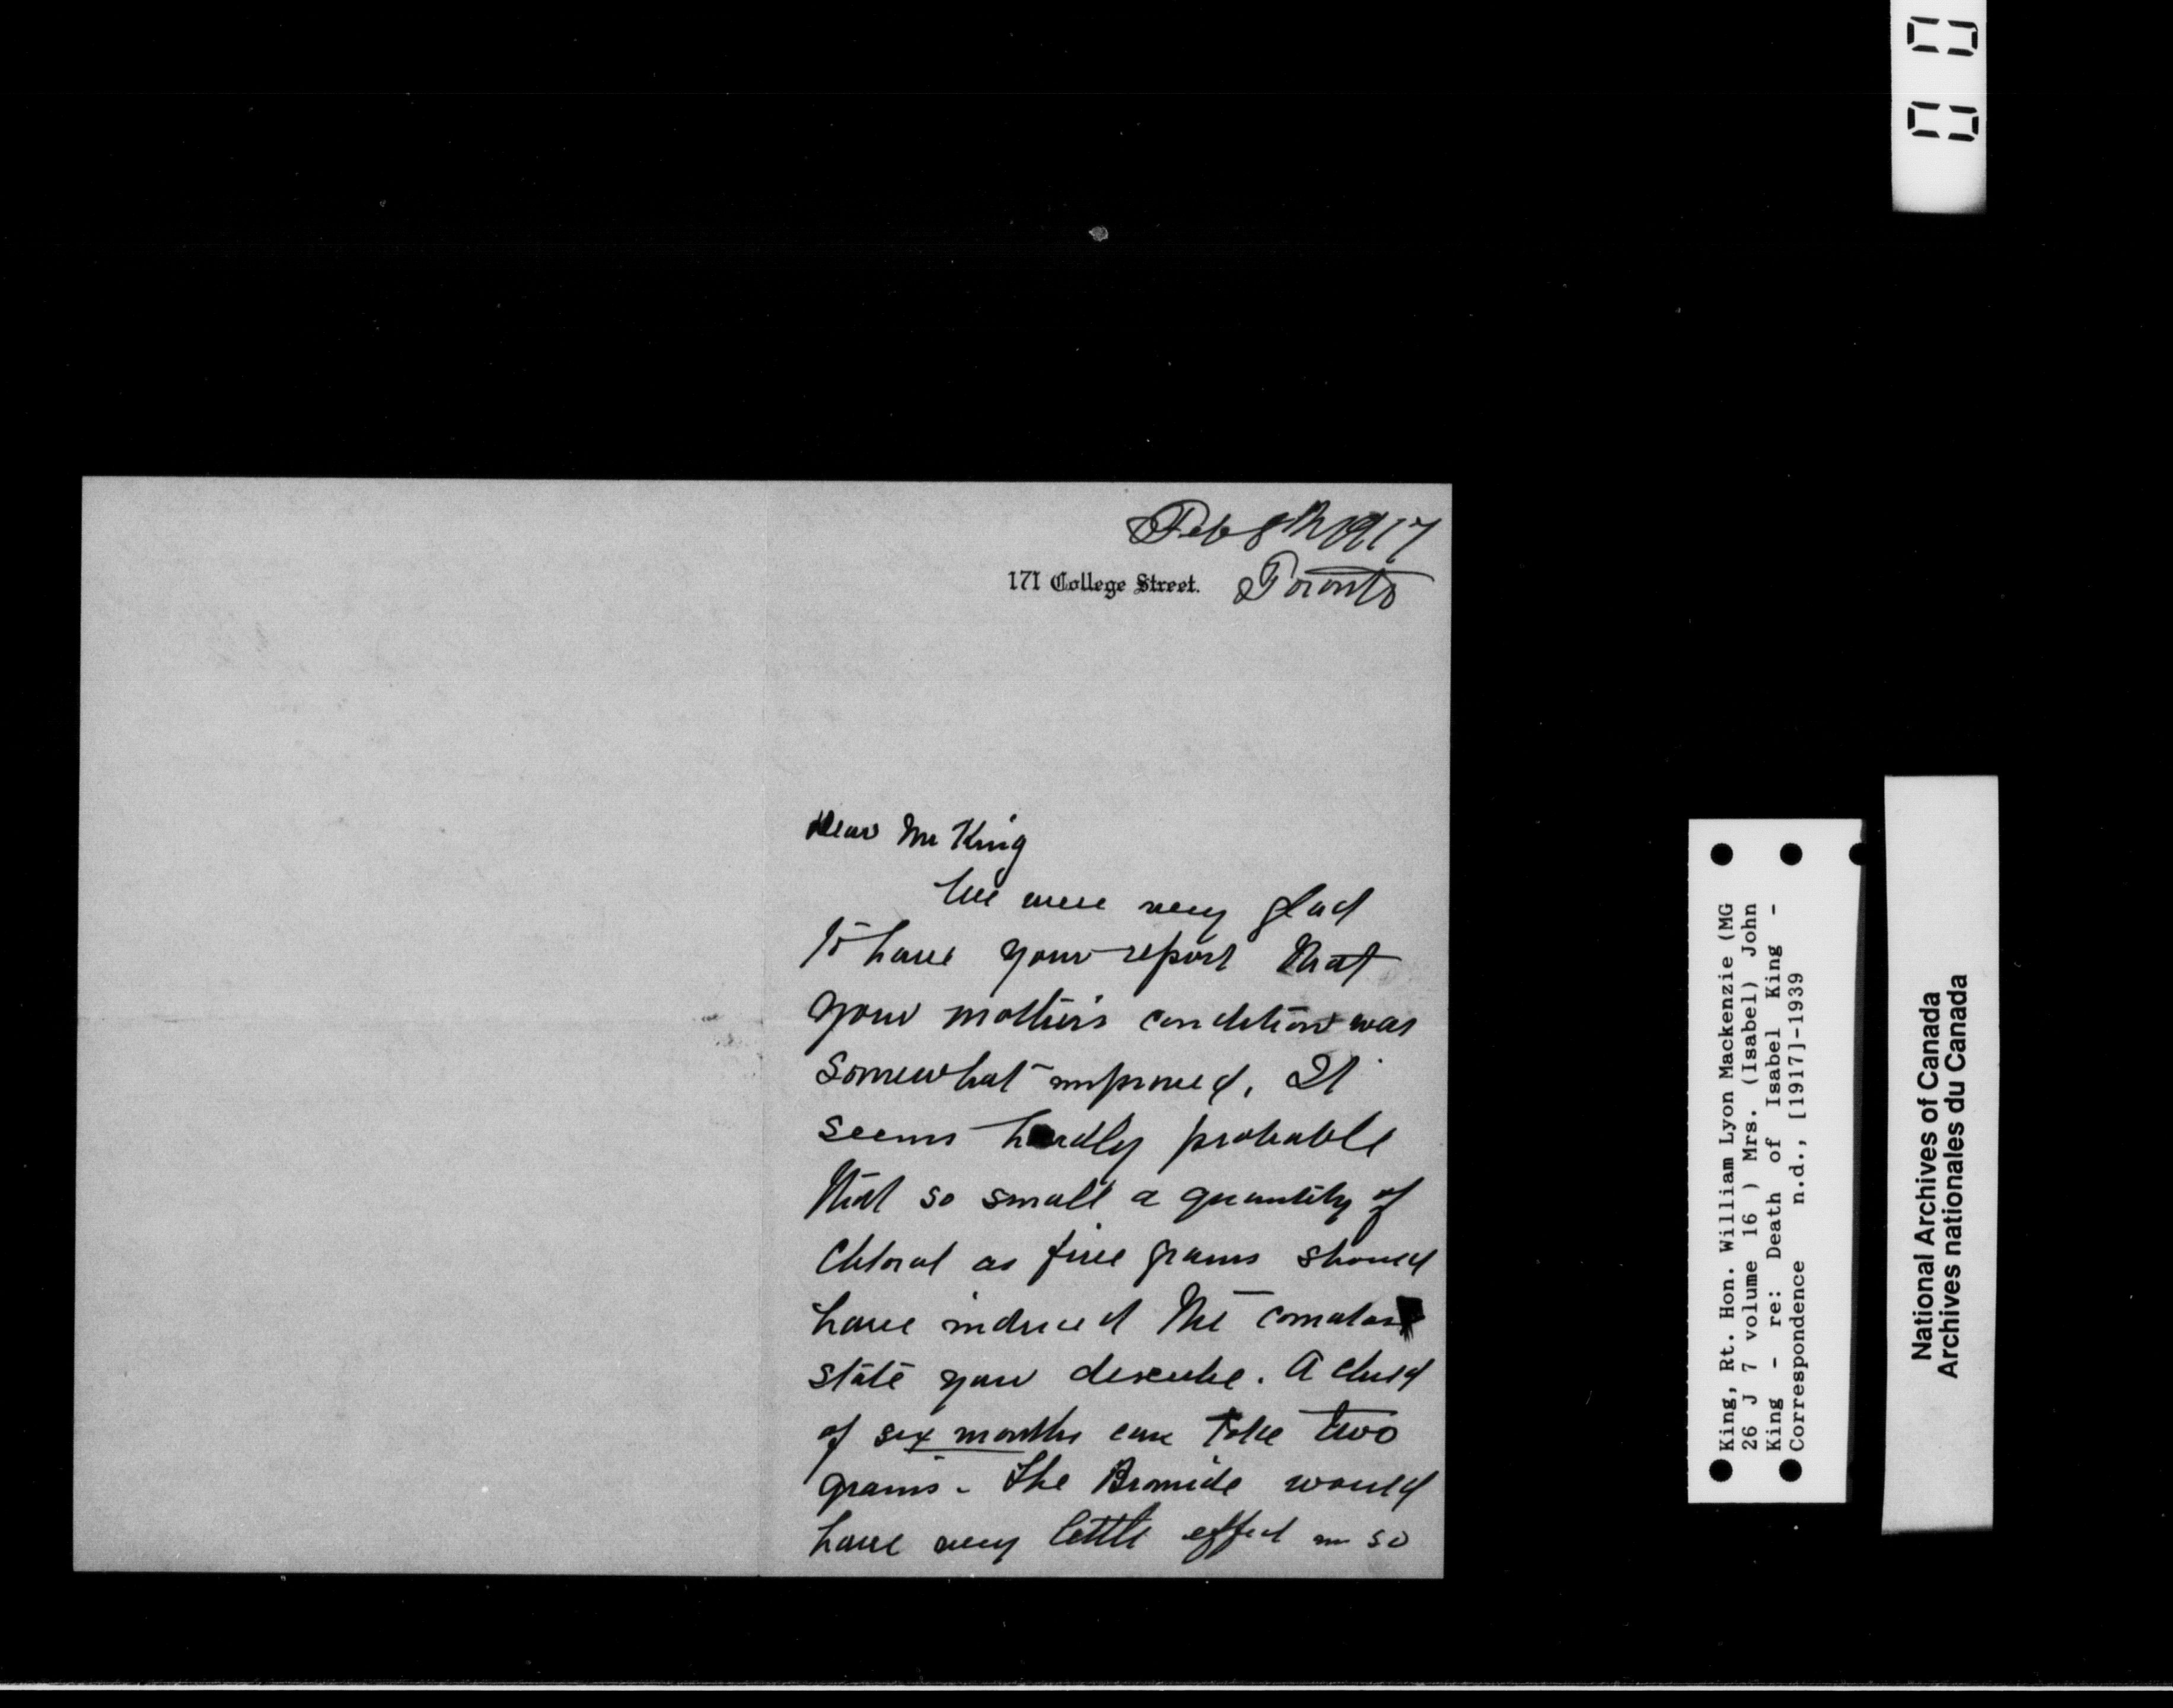 Feb 8th 1917
171 College Street. Toronto
Dear Mr King
We were very glad
to have your report that
your mother's condition was
somewhat improved. It
seems hardly probable
that so small a quantity of
Chloral as five grains should
have induced the comatose
state you describe. A child
of six months can take two
grains - The Bromide would
have very little effect in so
King, Rt. Hon. William Lyon Mackenzie (MG
26 J 7 volume 16 ) Mrs. (Isabel) John
King - re: Death of Isabel King -
Correspondence n.d., [1917]-1939
National Archives of Canada
Archives nationales du Canada